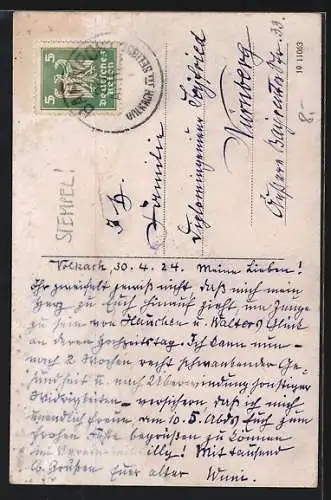 5 5
Deutsches
Reich
STEMPEL!
19 11063
8.-
S. H.
Familie
Diplomingenieur Seyfried
Nürnberg
Äußere Bayreuther Str. 33.
Volkach, 30. 4. 24. Meine Lieben!
Ihr zweifelt gewiß nicht daß mich mein
Herz zu Euch hinauf zieht, um Zeuge
zu sein von Häuschen u. Walters Glück
an deren Hochzeitstag. Ich kann nun
nach 2 Wochen recht schwankender Ge-
sundheit u. nach Überwindung sonstiger
Widrigkeiten versichern daß ich mich
unendlich freue, am 10. 5. Abds Euch zum
großen Feste begrüßen zu können
Mit tausend
lb. Grüßen Euer alter